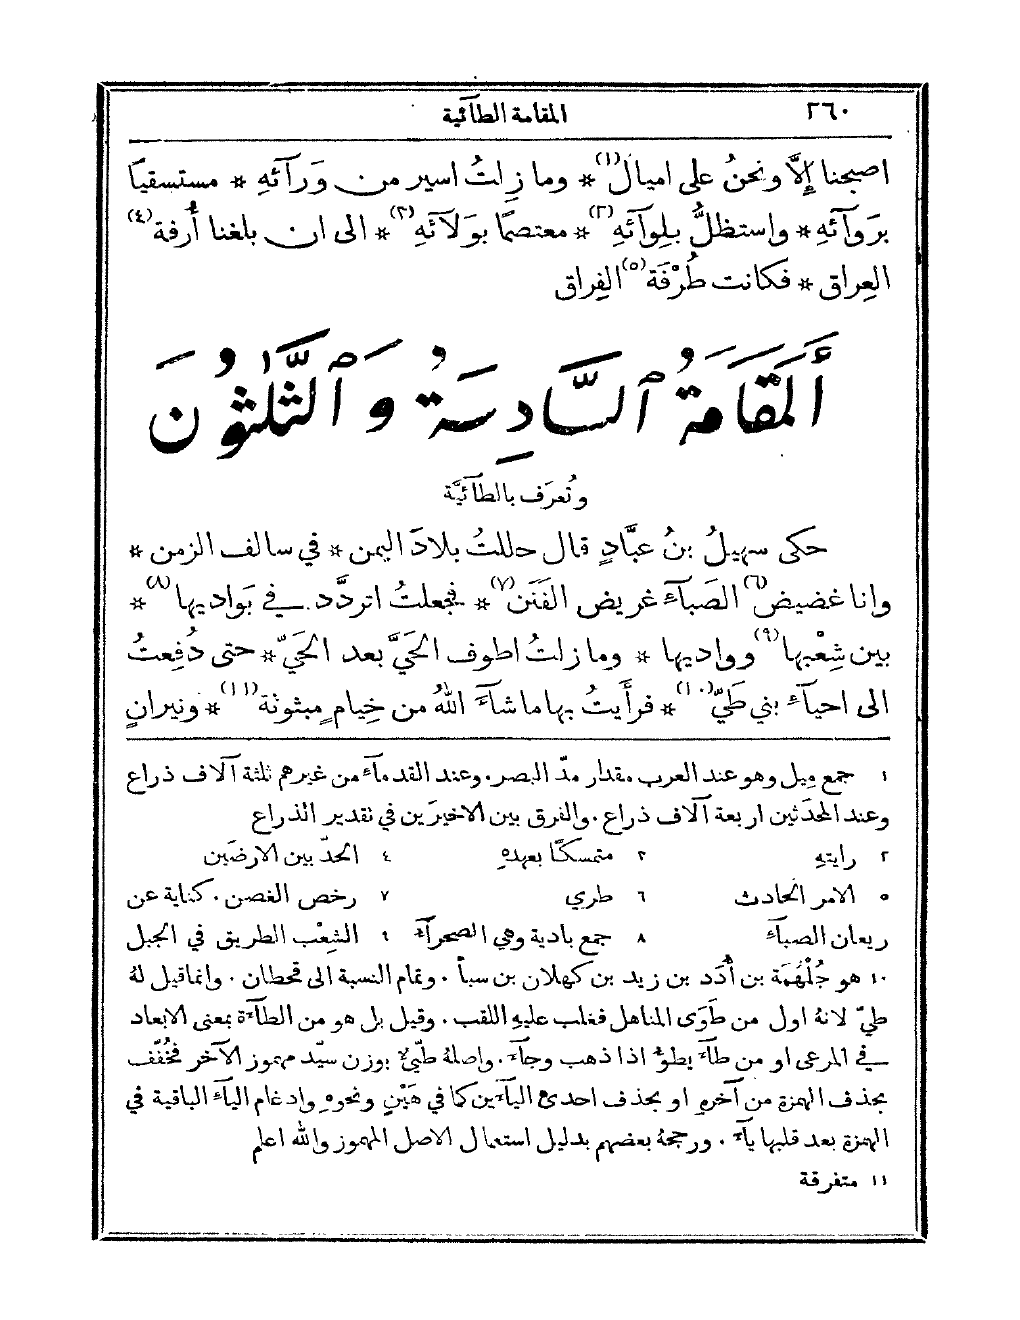 ٢٦٠ المقامة الطآئية
اصبحنا إلَّا ونحنُ على اميال(١) * وما زلتُ اسير من وَرآئهِ * مستسقيًا
برَوآئهِ * واستظلُّ بلِوآئهِ(٢) * معتصمًا بوَلآئهِ(٣) * الى ان بلغنا أُرفة(٤)
العِراق * فكانت طُرْفَة(٥) الفِراق
أَلمَقَامَةُ ٱلسَّادِسَةُ وَٱلثَّلٰثُونَ
وتُعرَف بالطآئيَّة
حكى سهيلُ بنُ عبَّادٍ قال حللتُ بلادَ اليمن * في سالف الزمن *
وانا غضيض(٦) الصَبآءِ غريض الفَنَن(٧) * فجعلتُ اتردَّد في بَواديها(٨) *
بين شِعْبها(٩) وواديها * وما زلتُ اطوف الحَيَّ بعد الحَيّ * حتى دُفِعتُ
الى احيآءِ بني طَيّ(١٠) * فرأَيتُ بها ما شآءَ اللهُ من خِيامٍ مبثوثة(١١) * ونيرانٍ
١ جمع مِيل وهو عند العرب مقدار مدّ البصر. وعند القدمآء من غيرهم ثلثة آلاف ذراع
وعند المحدَثين اربعة آلاف ذراع. والفرق بين الاخيرَين في تقدير الذراع
٢ رايتهِ ٣ متمسكًا بعهدهِ ٤ الحدّ بين الارضَين
٥ الامر الحادث ٦ طري ٧ رخص الغصن. كناية عن
ريعان الصبآءِ ٨ جمع بادية وهي الصحرآءُ ٩ الشِعْب الطريق في الجبل
١٠ هو جُلْهُمَة بن أُدَد بن زيد بن كهلان بن سبأ. وتمام النسبة الى قحطان. وانما قيل لهُ
طيّ لانهُ اول من طَوَى المناهل فغلب عليهِ اللقب. وقيل بل هو من الطآءَة بمعنى الابعاد
في المرعى او من طآءَ يطوءُ اذا ذهب وجآءَ. واصلهُ طيِّئ بوزن سيّد مهموز الآخر فخُفّف
بحذف الهمزة من آخرهِ او بحذف احدى اليآءَين كما في هَيْنٍ ونحوهِ وادغام اليآءِ الباقية في
الهمزة بعد قلبها يآءً. ورجحهُ بعضهم بدليل استعمال الاصل المهموز والله اعلم
١١ متفرقة